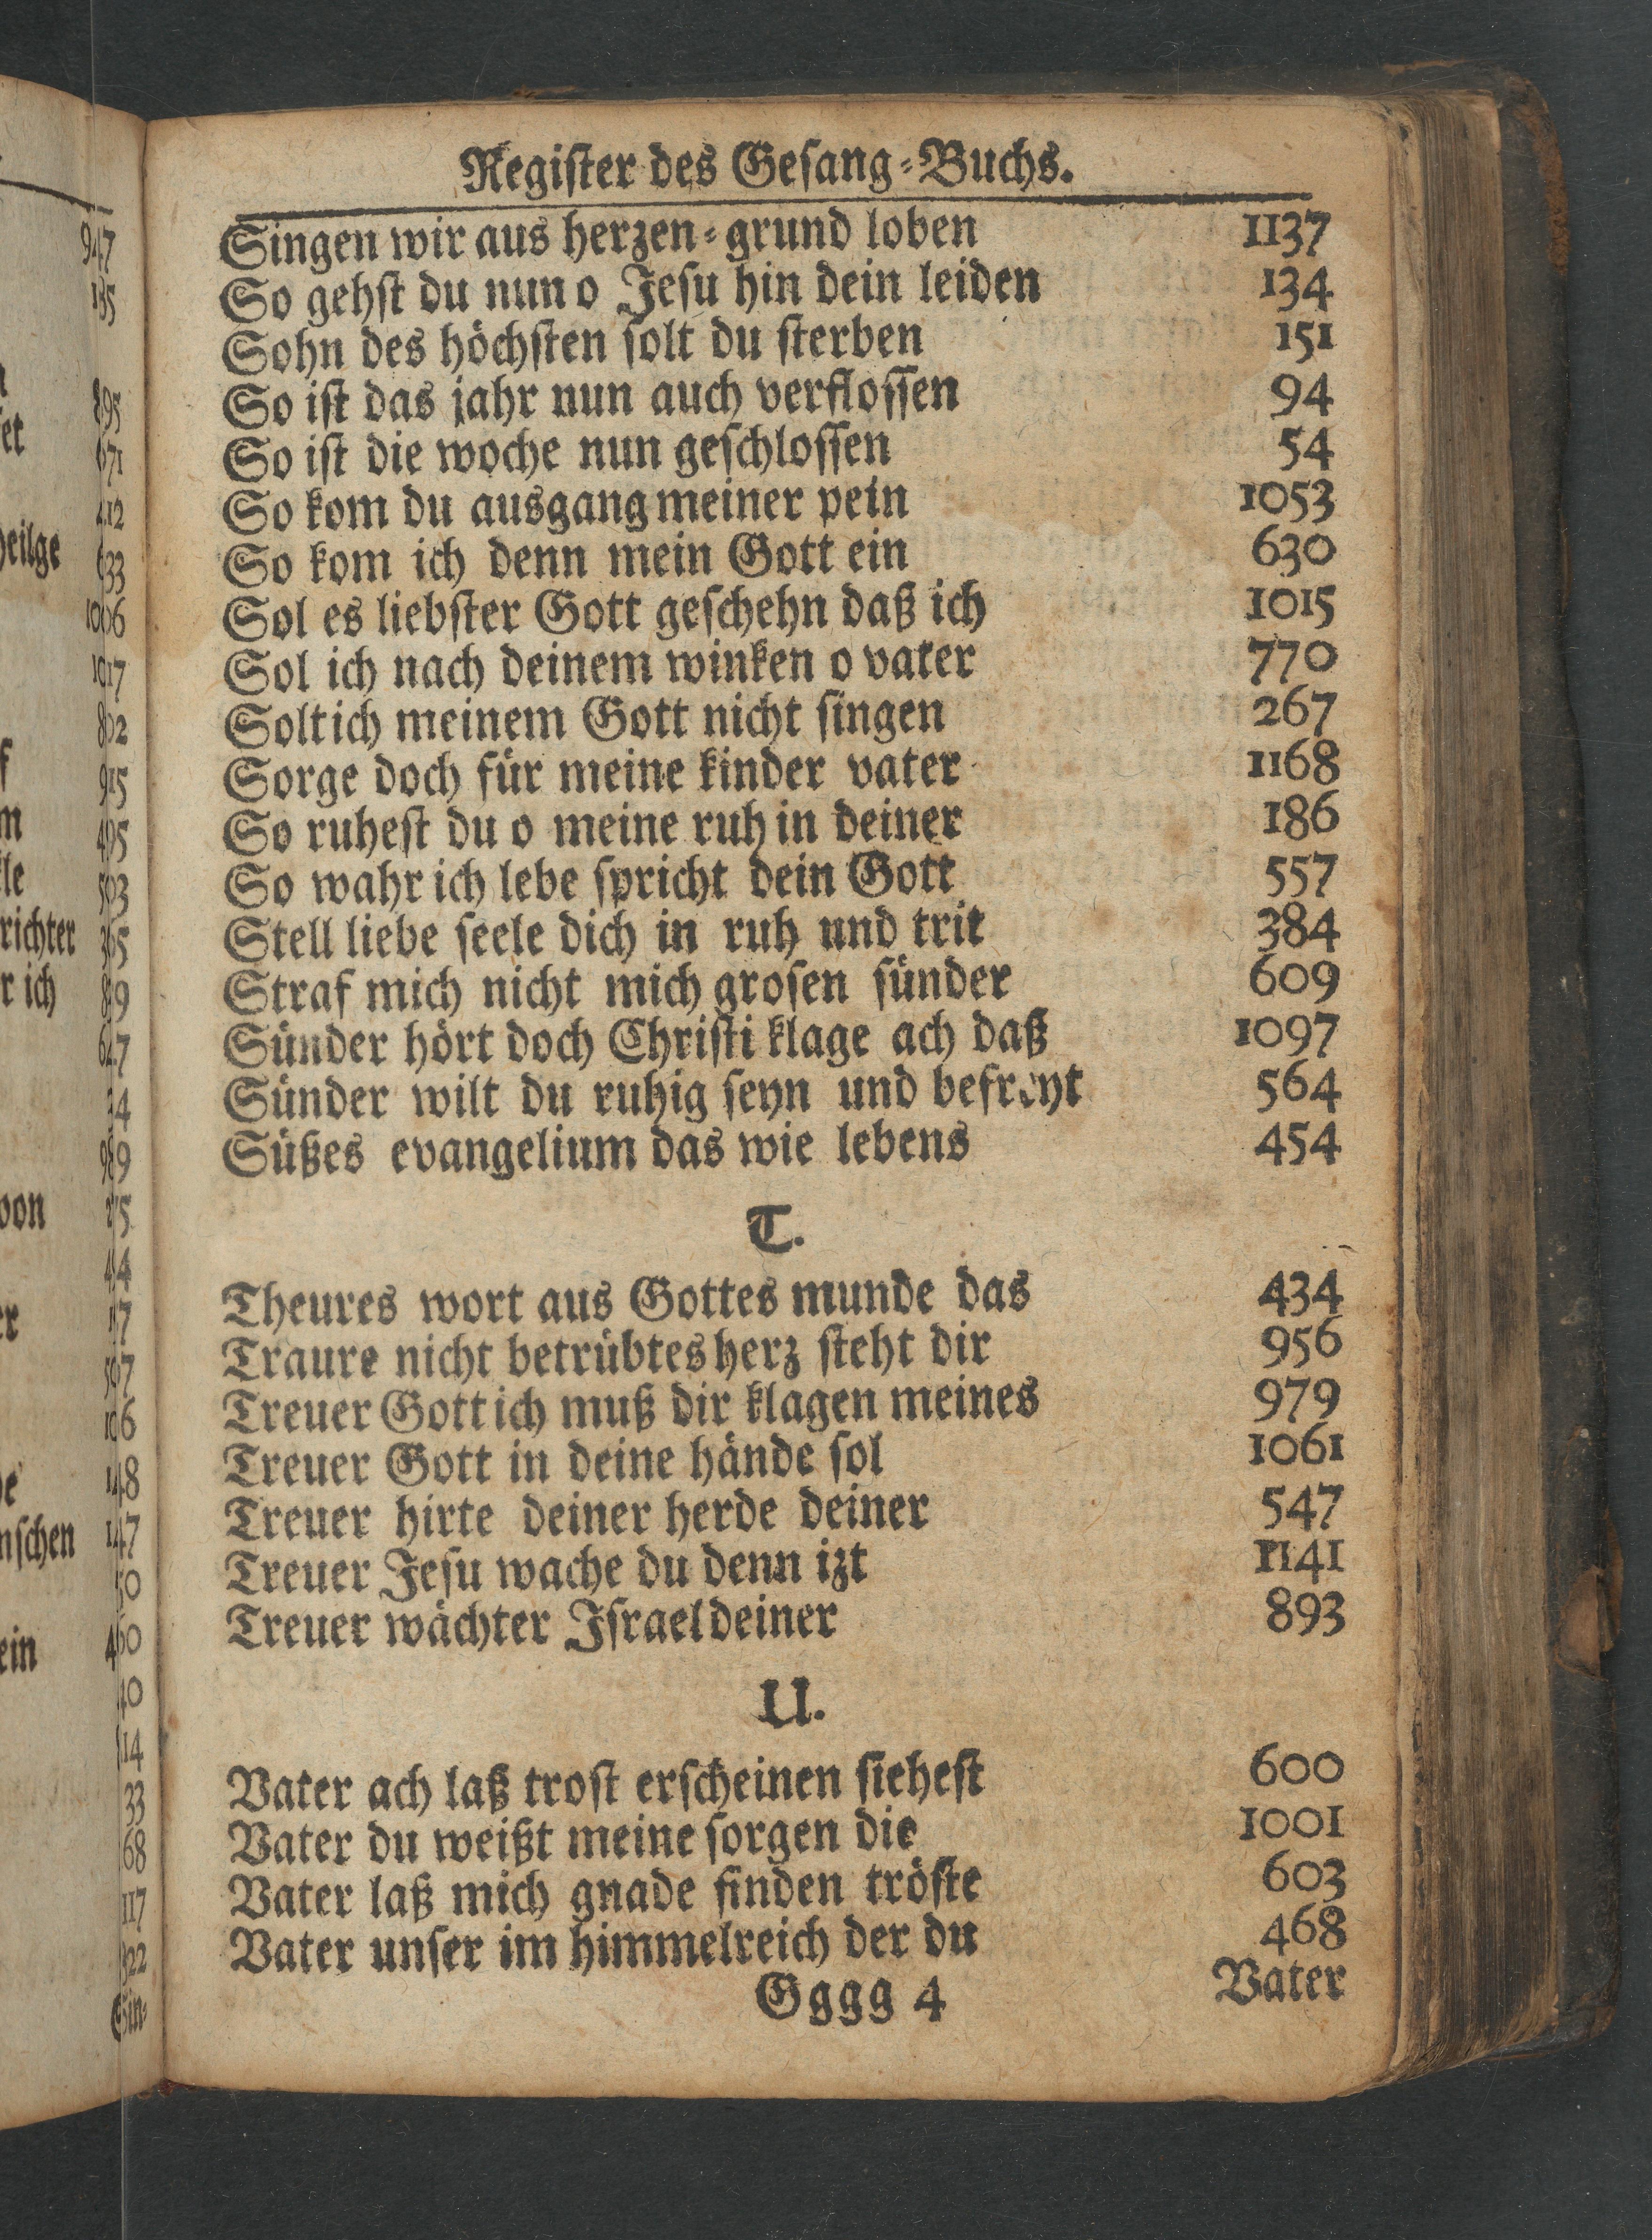 Register des Gesang-Buchs.
Singen wir aus herzen-grund loben 1137
So gehst du nun o Jesu hin dein leiden 134
Sohn des höchsten solt du sterben 151
So ist das jahr nun auch verflossen 94
So ist die woche nun geschlossen 54
So kom du ausgang meiner pein 1053
So kom ich denn mein Gott ein 630
Sol es liebster Gott geschehn daß ich 1015
Sol ich nach deinem winken o vater 770
Solt ich meinem Gott nicht singen 267
Sorge doch für meine kinder vater 1168
So ruhest du o meine ruh in deiner 186
So wahr ich lebe spricht dein Gott 557
Stell liebe seele dich in ruh und trit 384
Straf mich nicht mich grosen sünder 609
Sünder hört doch Christi klage ach daß 1097
Sünder wilt du ruhig seyn und befreyt 564
Süßes evangelium das wie lebens 454
T.
Theures wort aus Gottes munde das 434
Traure nicht betrübtes herz steht dir 956
Treuer Gott ich muß dir klagen meines 979
Treuer Gott in deine hände sol 1061
Treuer hirte deiner herde deiner 547
Treuer Jesu wache du denn izt 1141
Treuer wächter Israel deiner 893
U.
Vater ach laß trost erscheinen siehest 600
Vater du weißt meine sorgen die 1001
Vater laß mich gnade finden tröste 603
Vater unser im himmelreich der du 468
Gggg 4 Vater